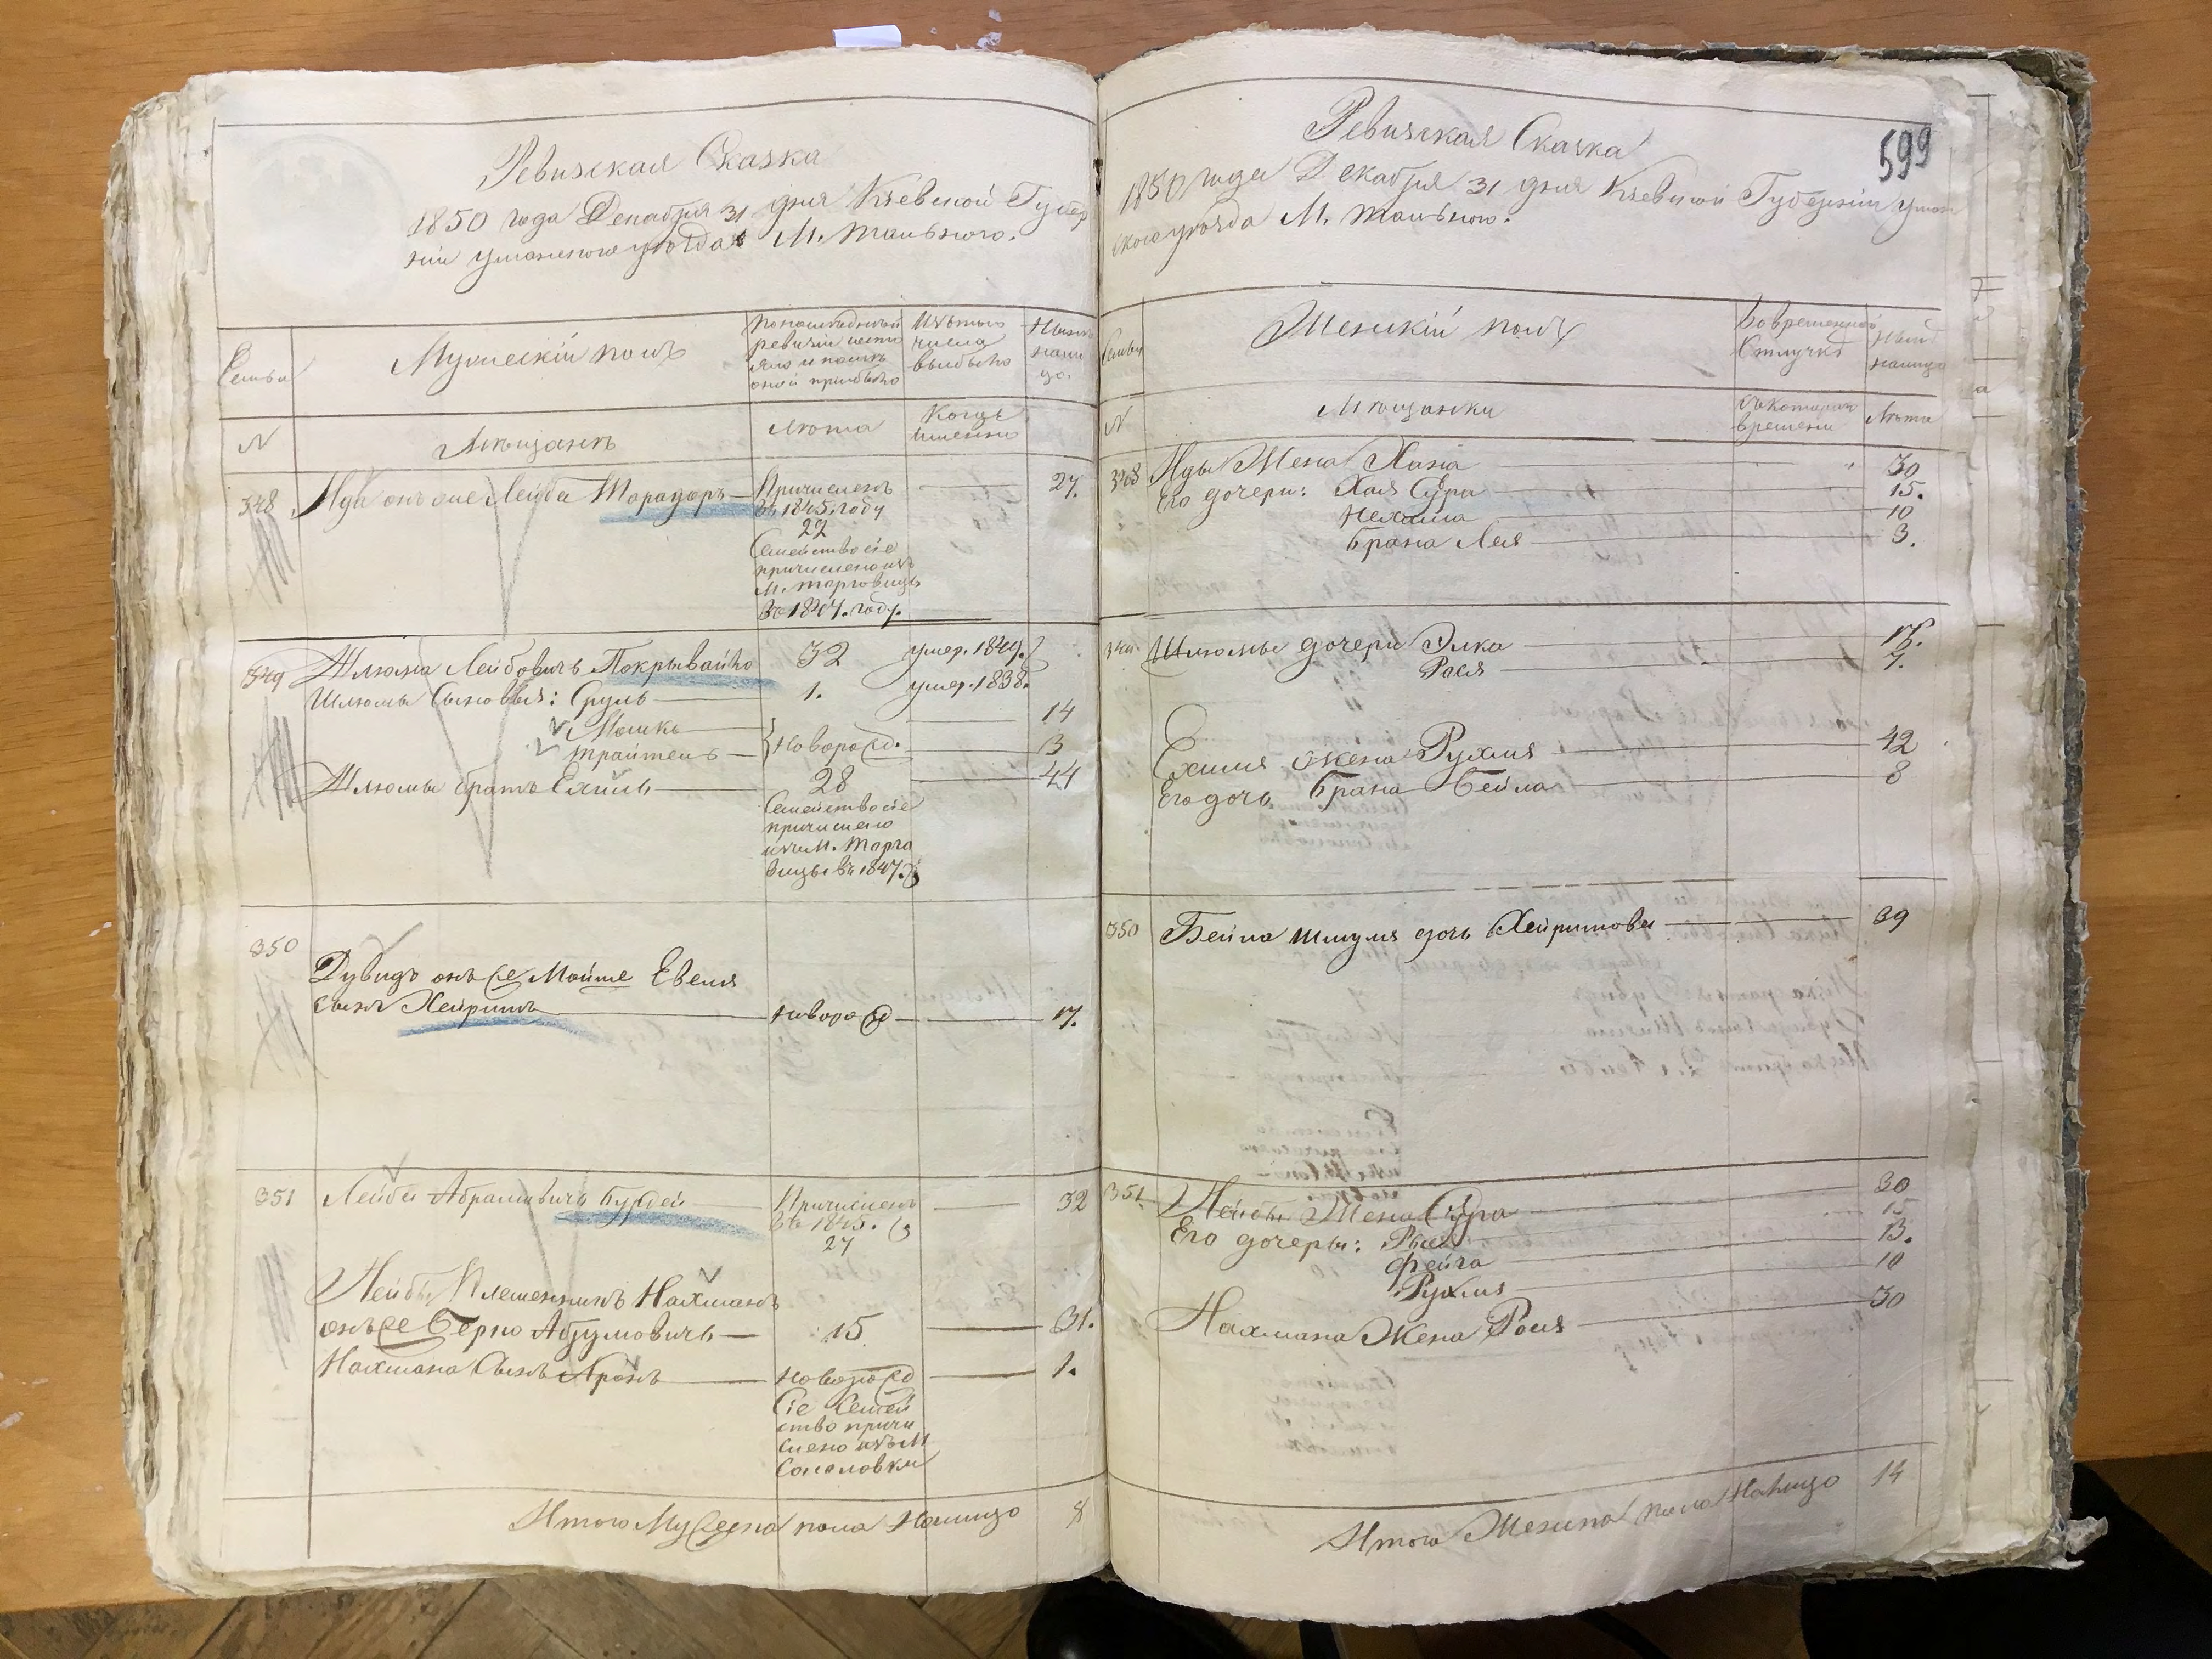 Ревизская Сказка
1850 года Декабря 31 дня Кіевской Губер
ніи уманского уѣзда М. Тального.
Семьи
Мужескій полъ
по последней
ревизіи состо
яло и послѣ
оной прибыло
Изъ того
числа
выбыло
Нынѣ
нали
цо.
N
Мѣщанъ
лѣта
Когда
именно
348
Нута онъ же Лейба
Причисленъ
въ 1845. году
22
27.
Семейство сіе
причислено изъ
М. Торговицы
въ 1847. году.
349
Шлюма Лейбовичъ Покрывайло
32
умер. 1849.
Шлюмы Сыновья: Сруль
1.
умер. 1838.
Мошко
новорожд.
14
Трайтель
3
Шлюмы братъ Ехиль
28
44
Семейство сіе
причислено
изъ М. Торго
вицы въ 1847.
350
Дувидъ онъ же Мойше Евеля
сынъ Хейришъ
новорожд
17.
351
Лейба Абрамовичъ Бурдей
Причисленъ
въ 1845.
27
32
Лейбы Племенникъ Нахманъ
онъ же Берко Абрумовичъ
15
31.
Нахмана Сынъ Аронъ
новорожд
1.
Сіе Семей
ство причи
слено изъ М
Соколовки
Итого Мужеска пола Налицо
8
599
Ревизская Сказка
1850 года Декабря 31 дня Кіевской Губерніи Уман
ского уѣзда М. Тального.
Семьи
Женскій полъ
Во временной
Отлучкѣ
Нынѣ
налицо
N
Мѣщанки
съ котораго
времени
Лѣта
348
Жена Хана
30
Его дочери: Хая Сура
15.
Нехама
10
Брана Лея
3.
349
Шлюмы дочери Элка
Рося
7.
Ехиля жена Рухля
42
Его дочь Брана Бейла
8
350
Бейла Шмуля дочь Хейришова
39
351
Лейбы Жена Сура
30
Его дочеры:
15
Фейга
13.
Рухля
10
Нахмана Жена Рося
30
Итого Женска пола Налицо
14